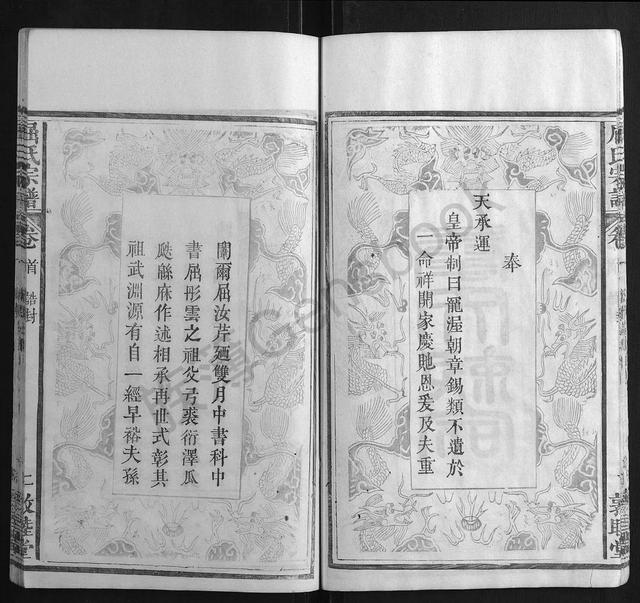 奉
天承運
皇帝制曰寵渥朝章錫類不遺於
一命祥開家慶貤恩爰及夫重
闈爾屈汝芹廼雙月中書科中
書屈彤雲之祖父弓裘衍澤瓜
瓞緜庥作述相承再世式彰其
祖武淵源有自一經早裕夫孫
屈氏宗譜
卷首
誥封